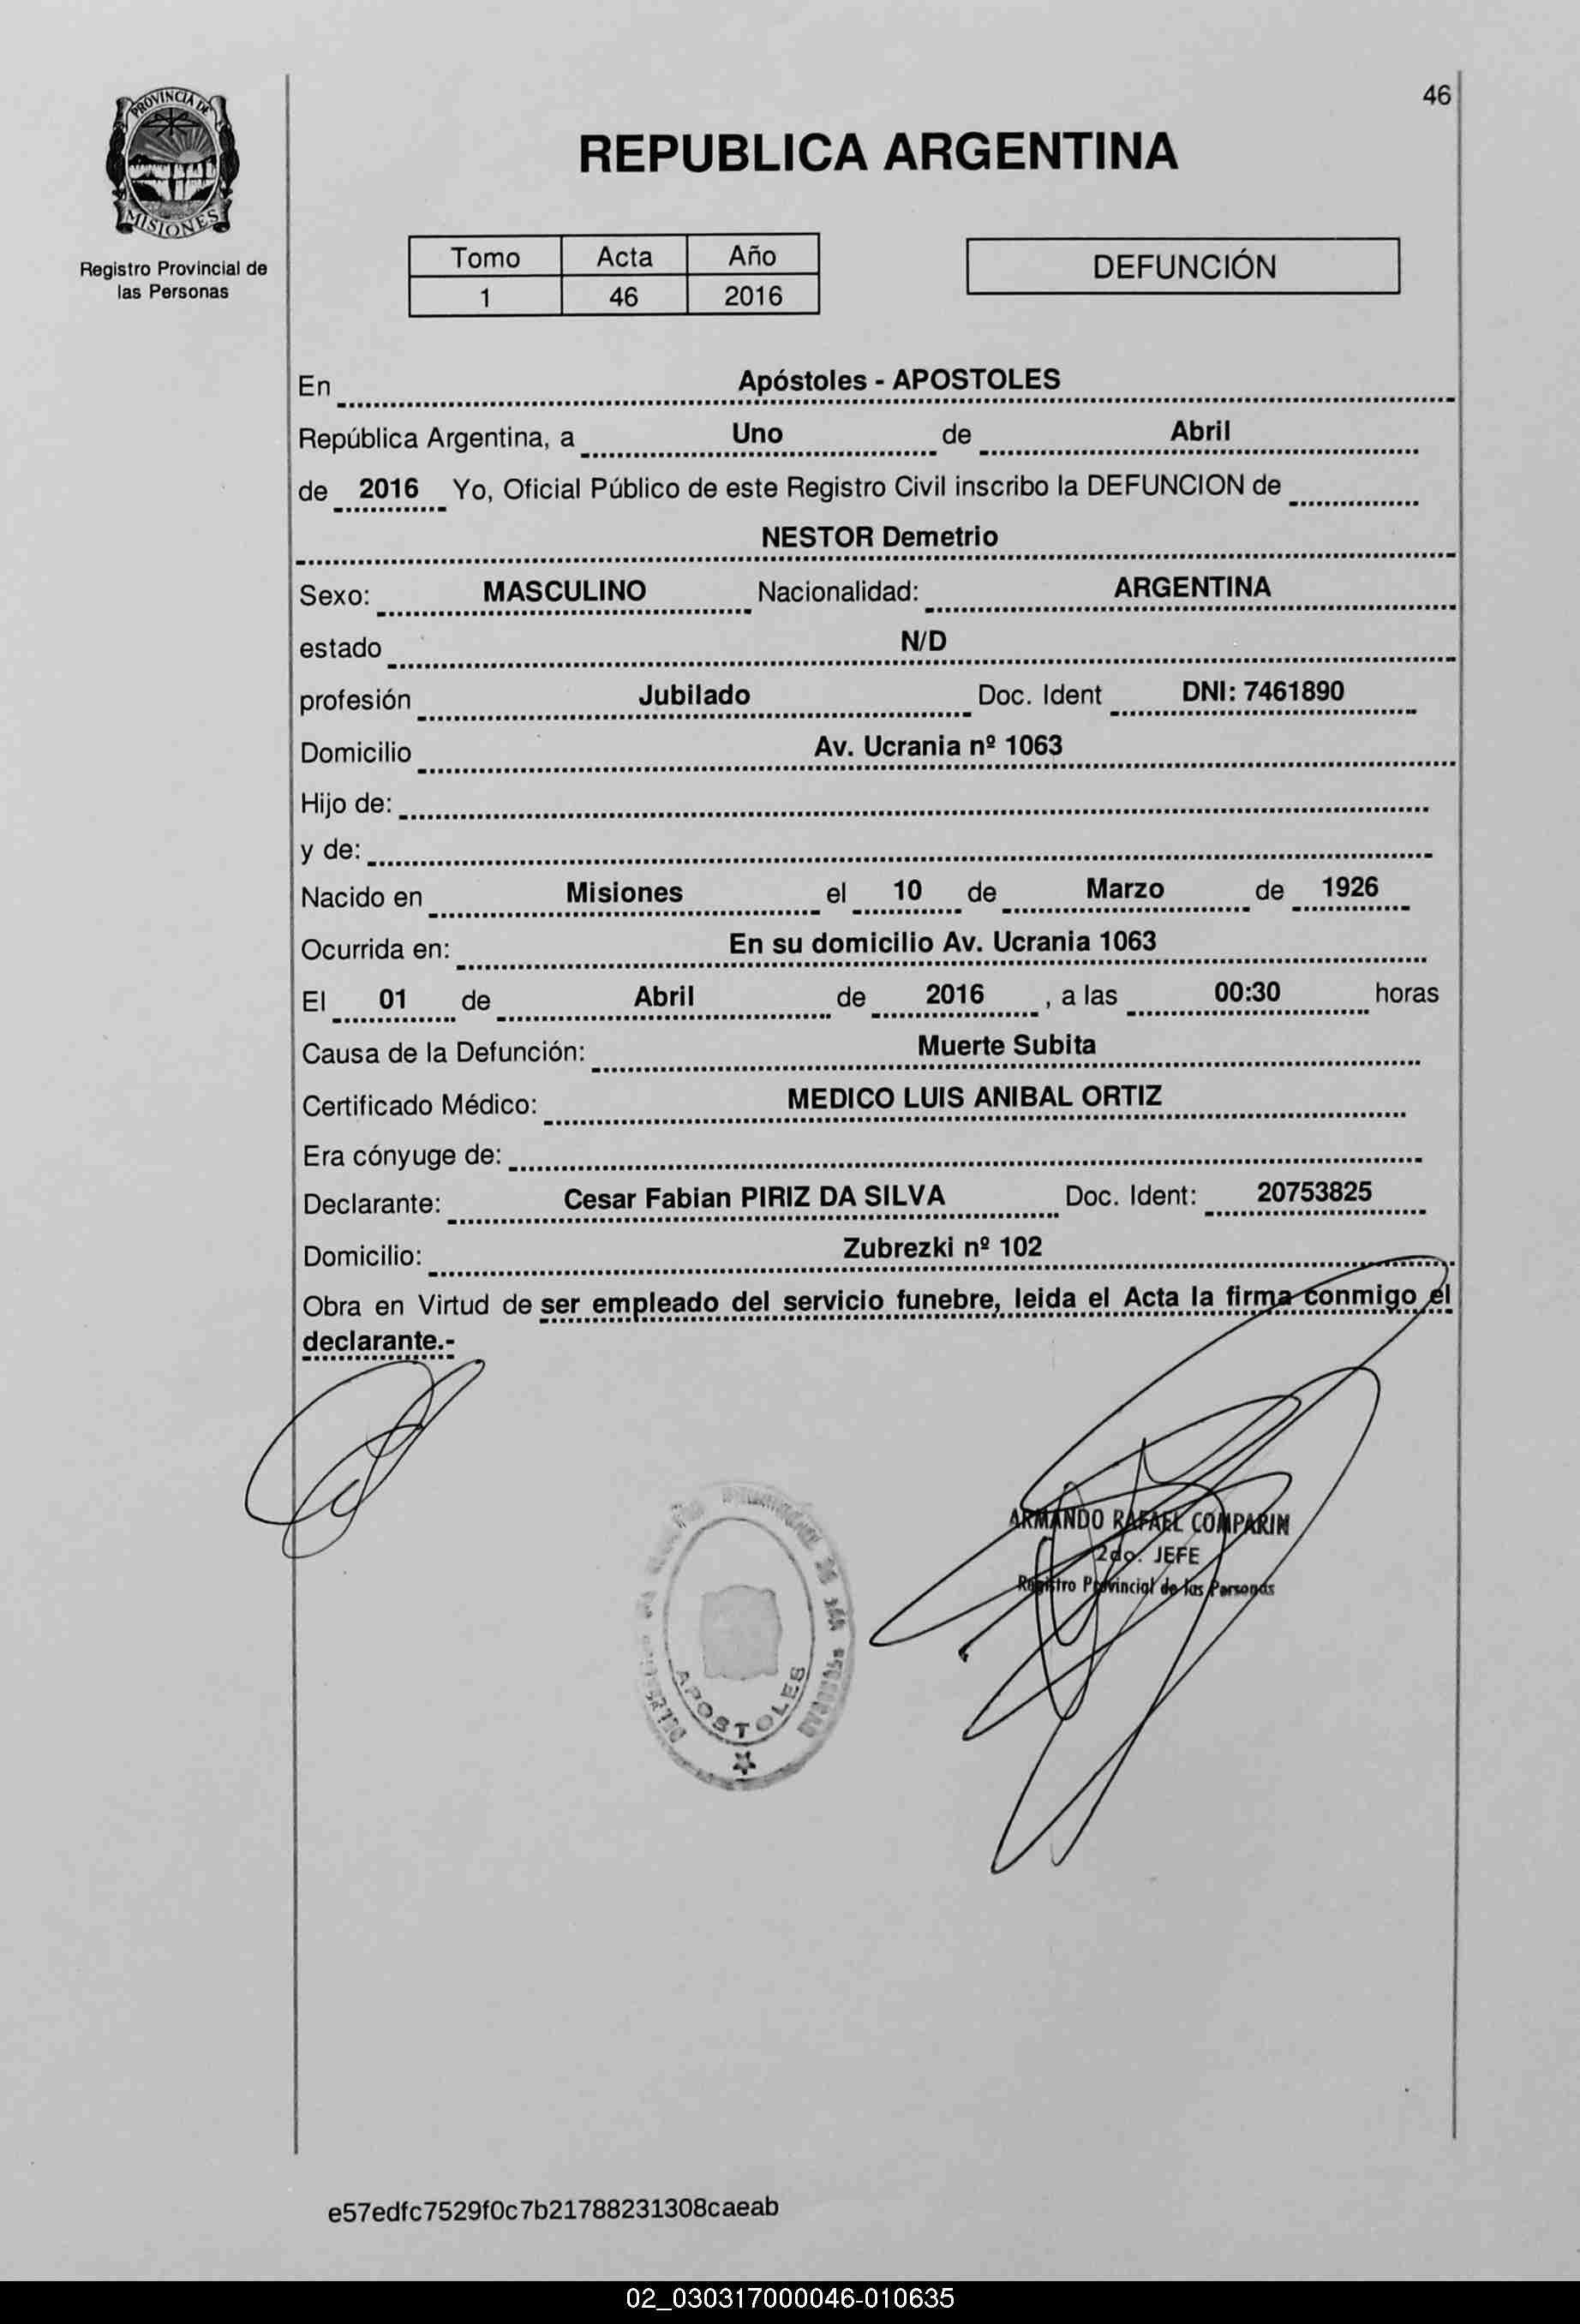 46
PROVINCIA DE
MISIONES
Registro Provincial de
las Personas
REPUBLICA ARGENTINA
Tomo Acta Año
1 46 2016
DEFUNCIÓN
En Apóstoles - APOSTOLES
República Argentina, a Uno de Abril
de 2016 Yo, Oficial Público de este Registro Civil inscribo la DEFUNCION de
NESTOR Demetrio
Sexo: MASCULINO Nacionalidad: ARGENTINA
estado N/D
profesión Jubilado Doc. Ident DNI: 7461890
Domicilio Av. Ucrania nº 1063
Hijo de:
y de:
Nacido en Misiones el 10 de Marzo de 1926
Ocurrida en: En su domicilio Av. Ucrania 1063
El 01 de Abril de 2016 , a las 00:30 horas
Causa de la Defunción: Muerte Subita
Certificado Médico: MEDICO LUIS ANIBAL ORTIZ
Era cónyuge de:
Declarante: Cesar Fabian PIRIZ DA SILVA Doc. Ident: 20753825
Domicilio: Zubrezki nº 102
Obra en Virtud de ser empleado del servicio funebre, leida el Acta la firma conmigo el
declarante.-
ARMANDO RAFAEL COMPARIN
2do. JEFE
Registro Provincial de las Personas
APOSTOLES
e57edfc7529f0c7b21788231308caeab
02_030317000046-010635